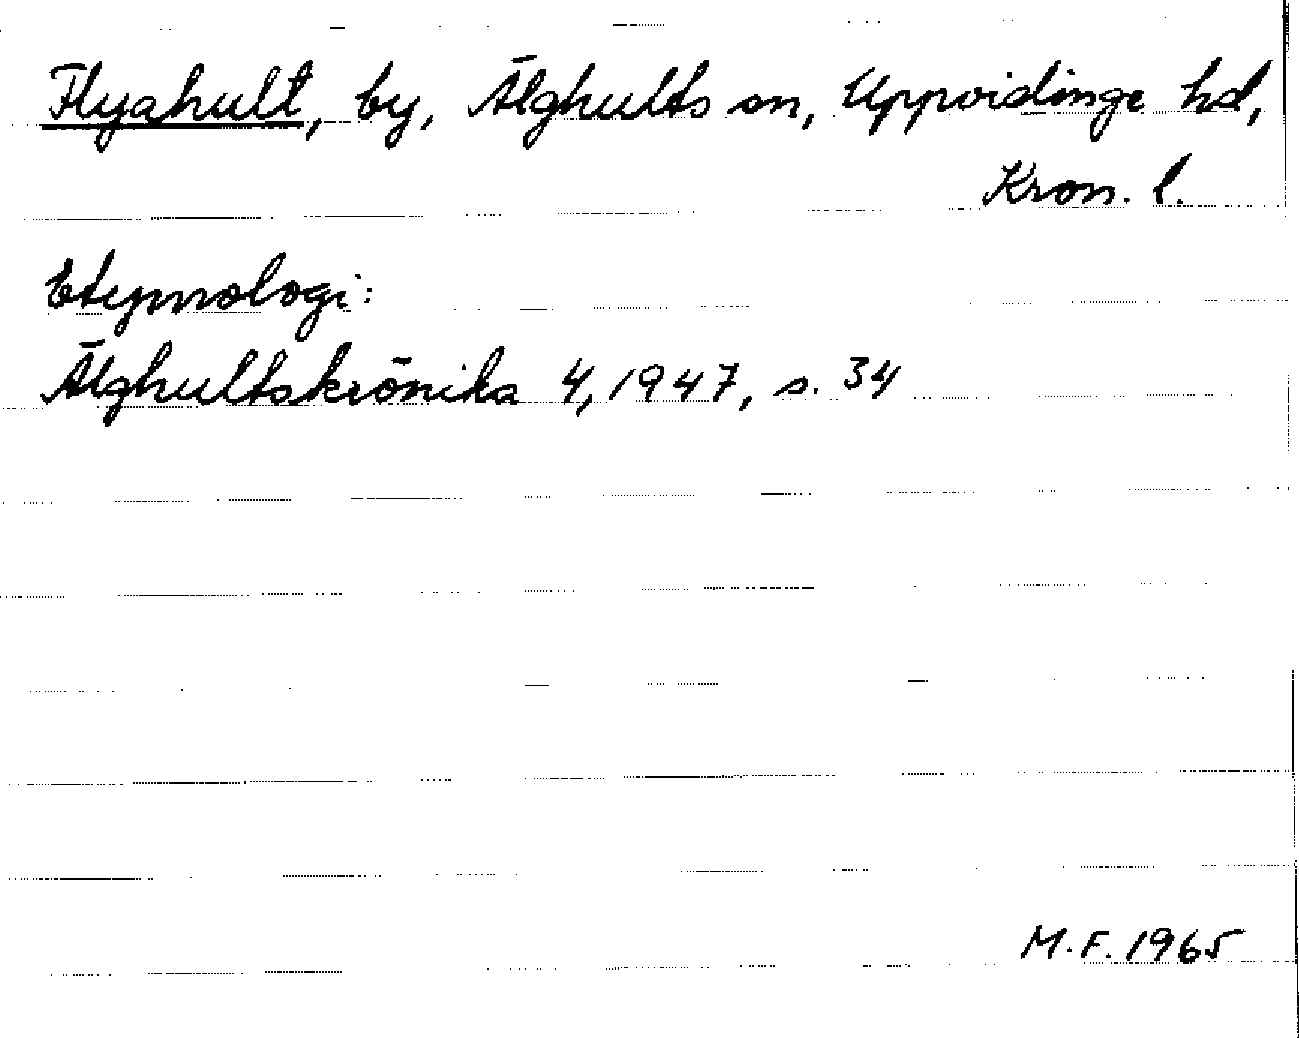 Flyahult, by, Älghults sn, Uppvidinge hd,
Kron. l.
Etymologi:
Älghultskrönika 4, 1947, s. 34
M.F. 1965